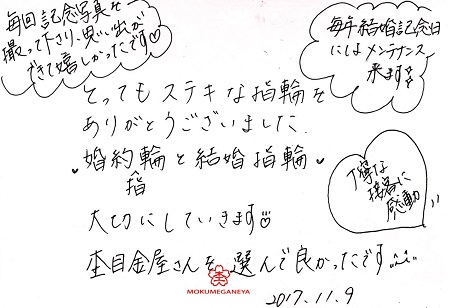 毎回記念写真を
撮って下さり、思い出が
できて嬉しかったです♡
毎年結婚記念日
にはメンテナンス
来ます
とってもステキな指輪を
ありがとうございました.
♥婚約指輪と結婚指輪♥
丁寧な
接客に
感動
大切にしていきます♡
杢目金屋さんを選んで良かったです
MOKUMEGANEYA
2017.11.9